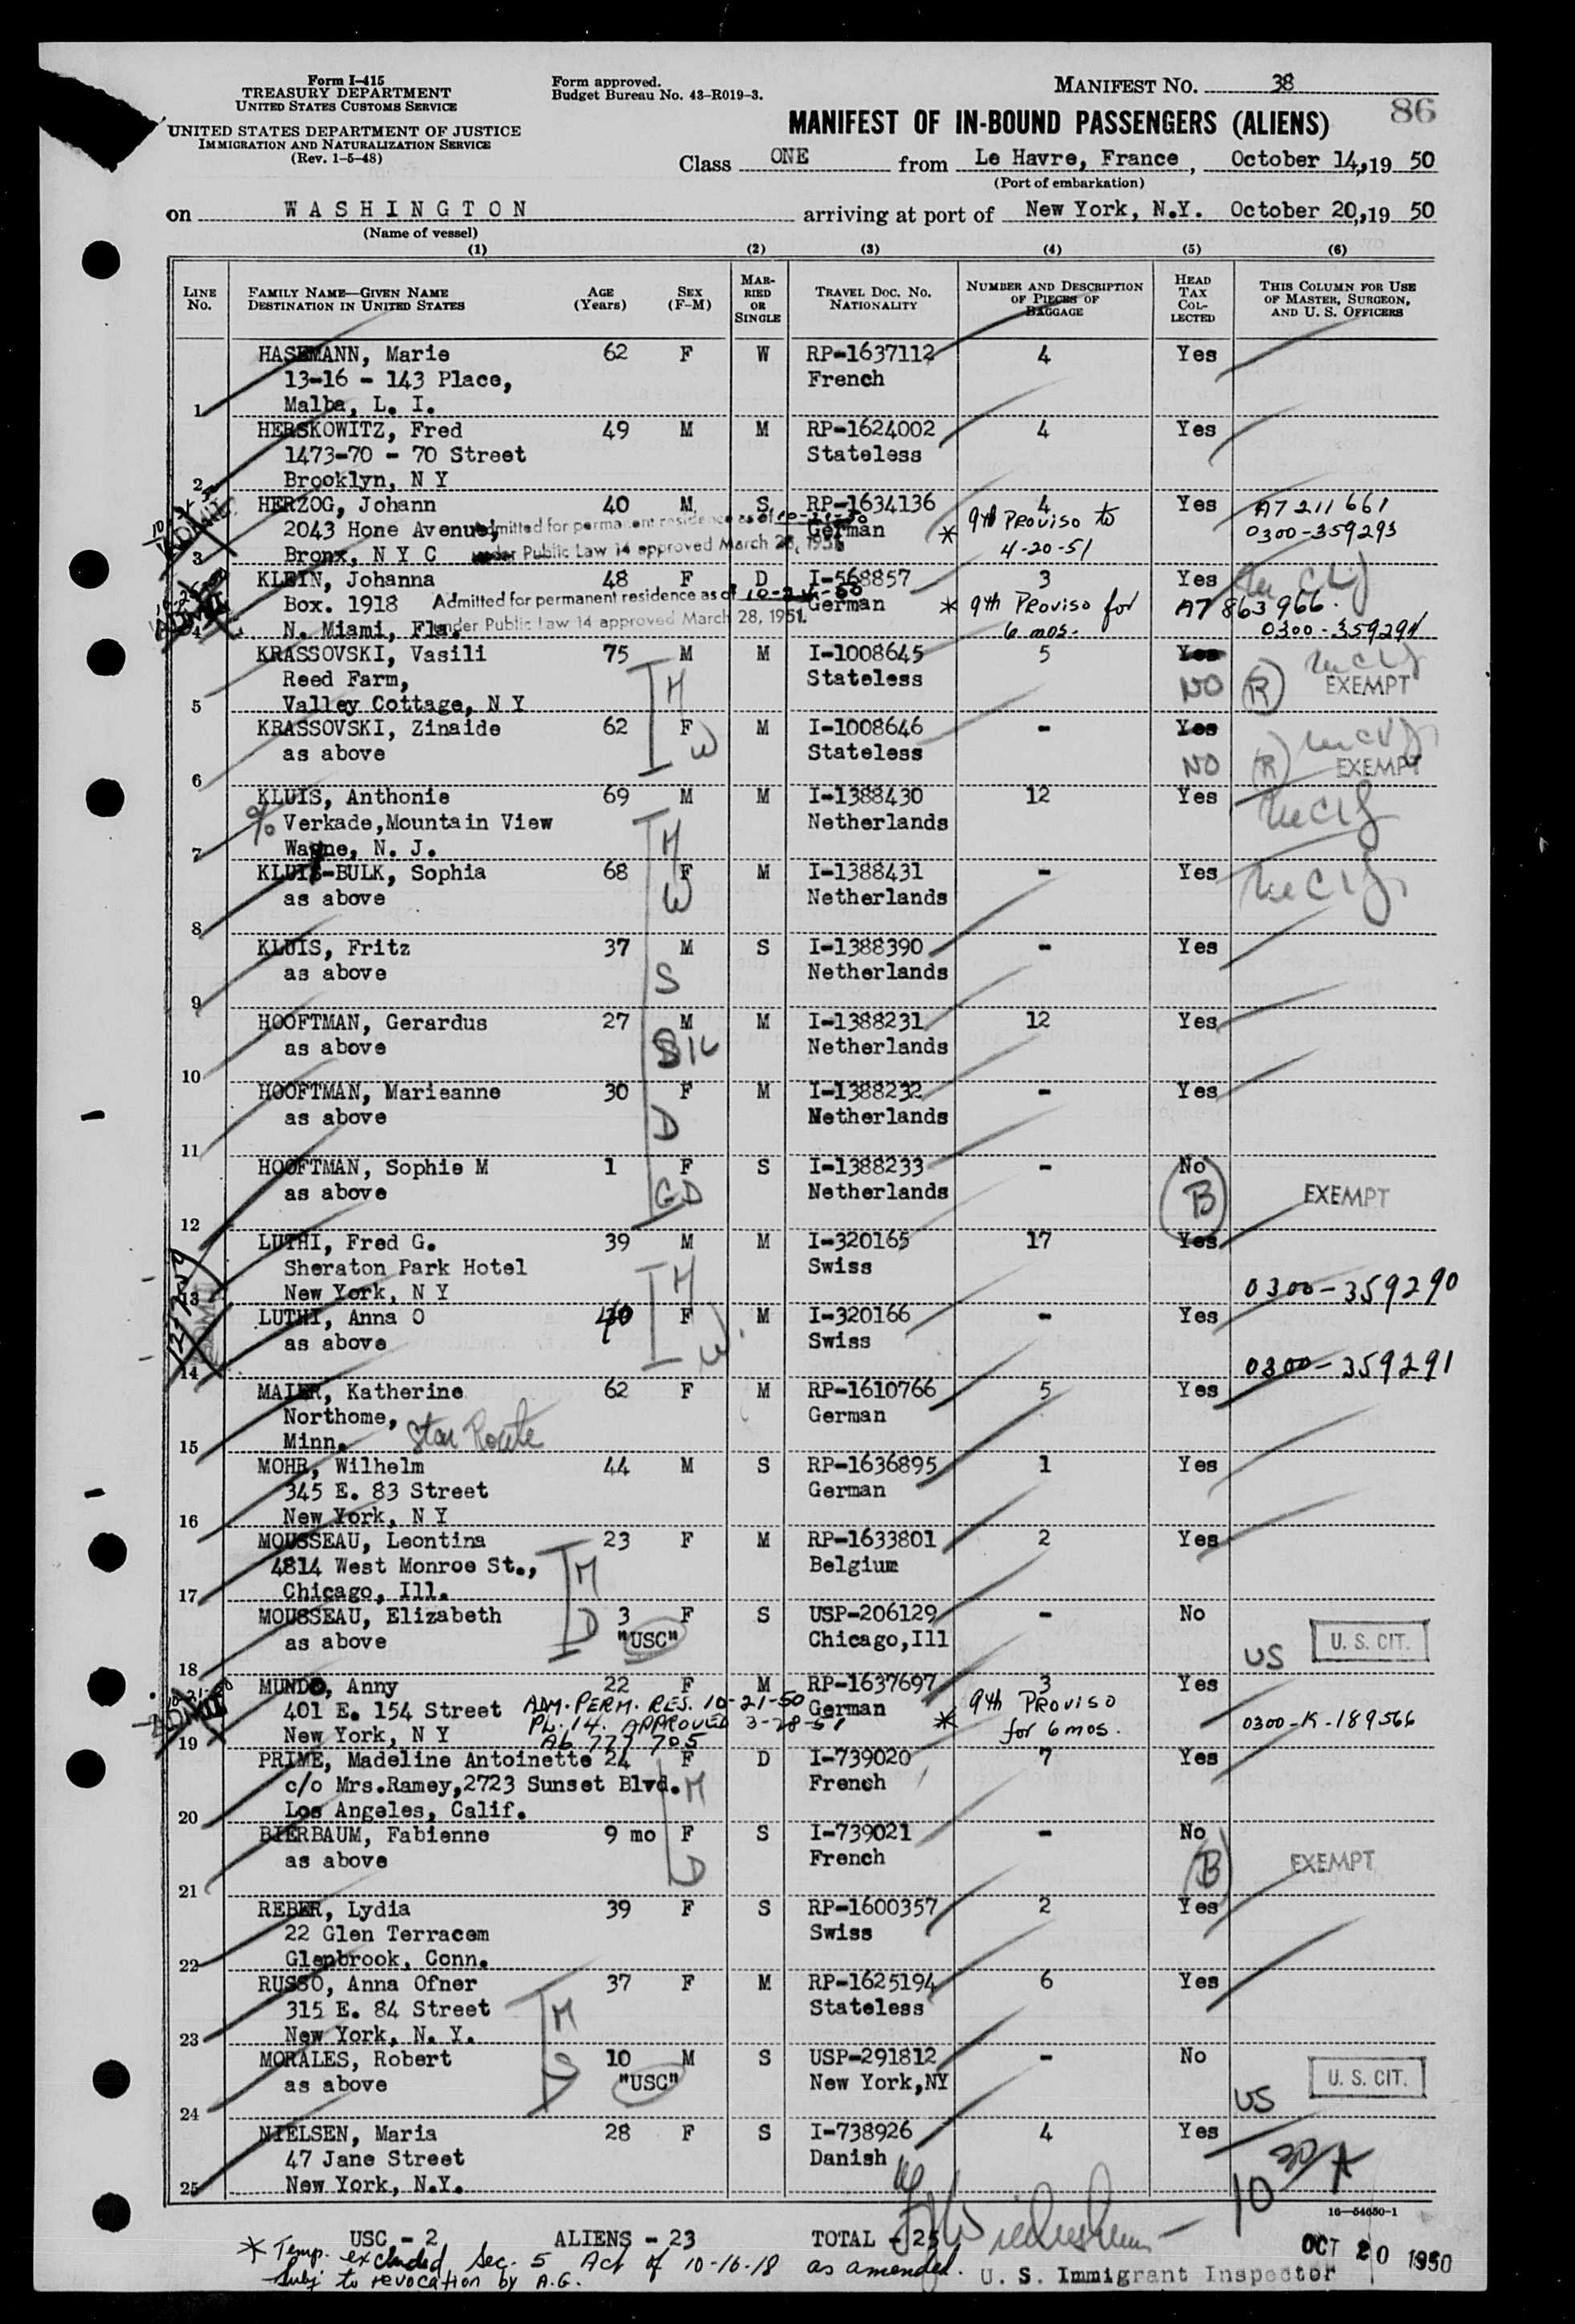 Form I-415
TREASURY DEPARTMENT
UNITED STATES CUSTOMS SERVICE
UNITED STATES DEPARTMENT OF JUSTICE
IMMIGRATION AND NATURALIZATION SERVICE
(Rev. 1-5-48)
Form approved.
Budget Bureau No. 43-R019-3.
MANIFEST NO. 38
86
MANIFEST OF IN-BOUND PASSENGERS (ALIENS)
Class ONE from Le Havre, France, October 14, 19 50
(Port of embarkation)
on WASHINGTON arriving at port of New York, N.Y. October 20, 19 50
(Name of vessel)
(1) (2) (3) (4) (5) (6)
LINE NO. FAMILY NAME—GIVEN NAME DESTINATION IN UNITED STATES AGE (Years) SEX (F-M) MARRIED OR SINGLE TRAVEL DOC. NO. NATIONALITY NUMBER AND DESCRIPTION OF PIECES OF BAGGAGE HEAD TAX COLLECTED THIS COLUMN FOR USE OF MASTER, SURGEON, AND U. S. OFFICERS
HASEMANN, Marie 62 F W RP-1637112 4 Yes
13-16 - 143 Place, French
1 Malba, L. I.
HERSKOWITZ, Fred 49 M M RP-1624002 4 Yes
1473-70 - 70 Street Stateless
2 Brooklyn, N Y
HERZOG, Johann 40 M S RP-1634136 4 Yes A7 211 661
2043 Hone Avenue, Admitted for permanent residence as of 10-21-50 German * 9th Proviso to 0300-359293
3 Bronx, N Y C under Public Law 14 approved March 28, 1951 4-20-51
KLEIN, Johanna 48 F D I-568857 3 Yes
Box. 1918 Admitted for permanent residence as of German * 9th Proviso for A7 863 966.
4 N. Miami, Fla. under Public Law 14 approved March 28, 1951. 6 mos. 0300-359294
KRASSOVSKI, Vasili 75 M M I-1008645 5 Yes
Reed Farm, H Stateless NO (R) EXEMPT
5 Valley Cottage, N Y
KRASSOVSKI, Zinaide 62 F M I-1008646 - Yes
as above W Stateless NO (R) EXEMPT
6
KLUIS, Anthonie 69 M M I-1388430 12 Yes
% Verkade,Mountain View H Netherlands
7 Wayne, N. J.
KLUIS-BULK, Sophia 68 F M I-1388431 - Yes
as above W Netherlands
8
KLUIS, Fritz 37 M S I-1388390 - Yes
as above S Netherlands
9
HOOFTMAN, Gerardus 27 M M I-1388231 12 Yes
as above SIL Netherlands
10
HOOFTMAN, Marieanne 30 F M I-1388232 - Yes
as above D Netherlands
11
HOOFTMAN, Sophie M 1 F S I-1388233 - No
as above GD Netherlands B EXEMPT
12
LUTHI, Fred G. 39 M M I-320165 17 Yes
Sheraton Park Hotel H Swiss
13 New York, N Y 0300-359290
LUTHI, Anna O 40 F M I-320166 - Yes
as above W Swiss
14 0300-359291
MAIER, Katherine 62 F M RP-1610766 5 Yes
Northome, German
15 Minn. Star Route
MOHR, Wilhelm 44 M S RP-1636895 1 Yes
345 E. 83 Street German
16 New York, N Y
MOUSSEAU, Leontina 23 F M RP-1633801 2 Yes
4814 West Monroe St., M Belgium
17 Chicago, Ill.
MOUSSEAU, Elizabeth 3 F S USP-206129 - No
as above D "USC" Chicago,Ill US U. S. CIT.
18
MUNDO, Anny 22 F M RP-1637697 3 Yes
401 E. 154 Street ADM. PERM. RES. 10-21-50 German * 9th Proviso
19 New York, N Y PL. 14. APPROVED 3-28-51 for 6 mos. 0300-K-189566
A6 777 705
PRIME, Madeline Antoinette 24 F D I-739020 7 Yes
c/o Mrs.Ramey,2723 Sunset Blvd. M French
20 Los Angeles, Calif.
BIERBAUM, Fabienne 9 mo F S I-739021 - No
as above D French B EXEMPT
21
REBER, Lydia 39 F S RP-1600357 2 Yes
22 Glen Terracem Swiss
22 Glenbrook, Conn.
RUSSO, Anna Ofner 37 F M RP-1625194 6 Yes
315 E. 84 Street M Stateless
23 New York, N. Y.
MORALES, Robert 10 M S USP-291812 - No
as above S "USC" New York,NY US U. S. CIT.
24
NIELSEN, Maria 28 F S I-738926 4 Yes
47 Jane Street Danish
25 New York, N.Y.
16-54650-1
USC - 2 ALIENS - 23 TOTAL - 25
OCT 20 1950
* Temp. excluded Sec. 5 Act of 10-16-18 as amended.
Subj to revocation by A.G.
U. S. Immigrant Inspector